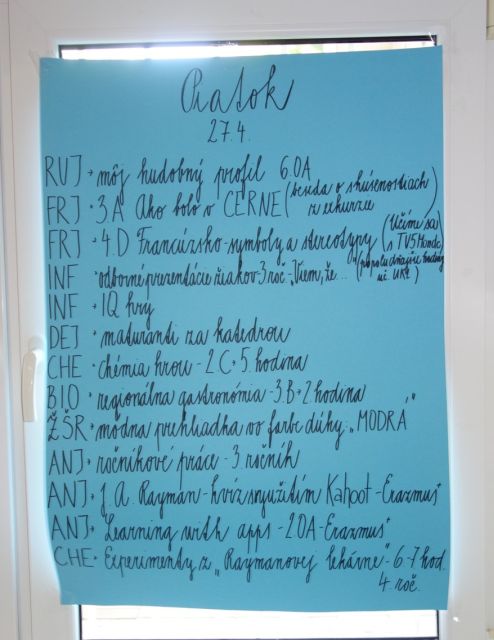 Piatok
27.4.
RUJ • môj hudobný profil 6.OA
FRJ • 3.A Ako bolo v CERNE (beseda o skúsenostiach z exkurzie)
FRJ • 4.D Francúzsko-symboly a stereotypy (Učíme sa s TV5Monde)
INF • odborné prezentácie žiakov-3.roč-„Viem, že... (popoludňajšie hodiny uč. UKE)
INF • IQ hry
DEJ • maturanti za katedrou
CHE • chémia hrou - 2.C • 5. hodina
BIO • regionálna gastronómia - 3.B • 2. hodina
ŽŠR • módna prehliadka vo farbe dúhy „MODRÁ"
ANJ • ročníkové práce - 3. ročník
ANJ • J. A. Rayman - kvíz s využitím Kahoot - Erazmus+
ANJ • Learning with apps - 2.OA - Erazmus+
CHE • Experimenty z „Raymanovej lekárne" - 6-7 hod.
4. roč.